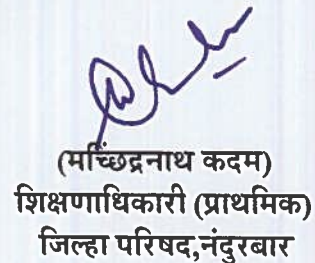 (मच्छिंद्रनाथ कदम)
शिक्षणाधिकारी (प्राथमिक)
जिल्हा परिषद,नंदुरबार